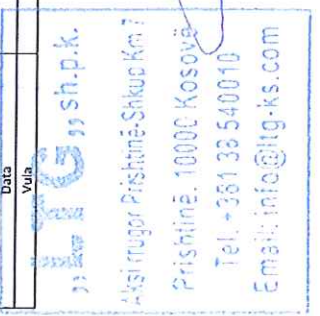 Data
Vula
,,LTG,, sh.p.k.
Aksi rrugor Prishtinë-Shkup Km 7
Prishtinë, 10000 Kosovë
Tel. +381 38 540010
Email: info@ltg-ks.com